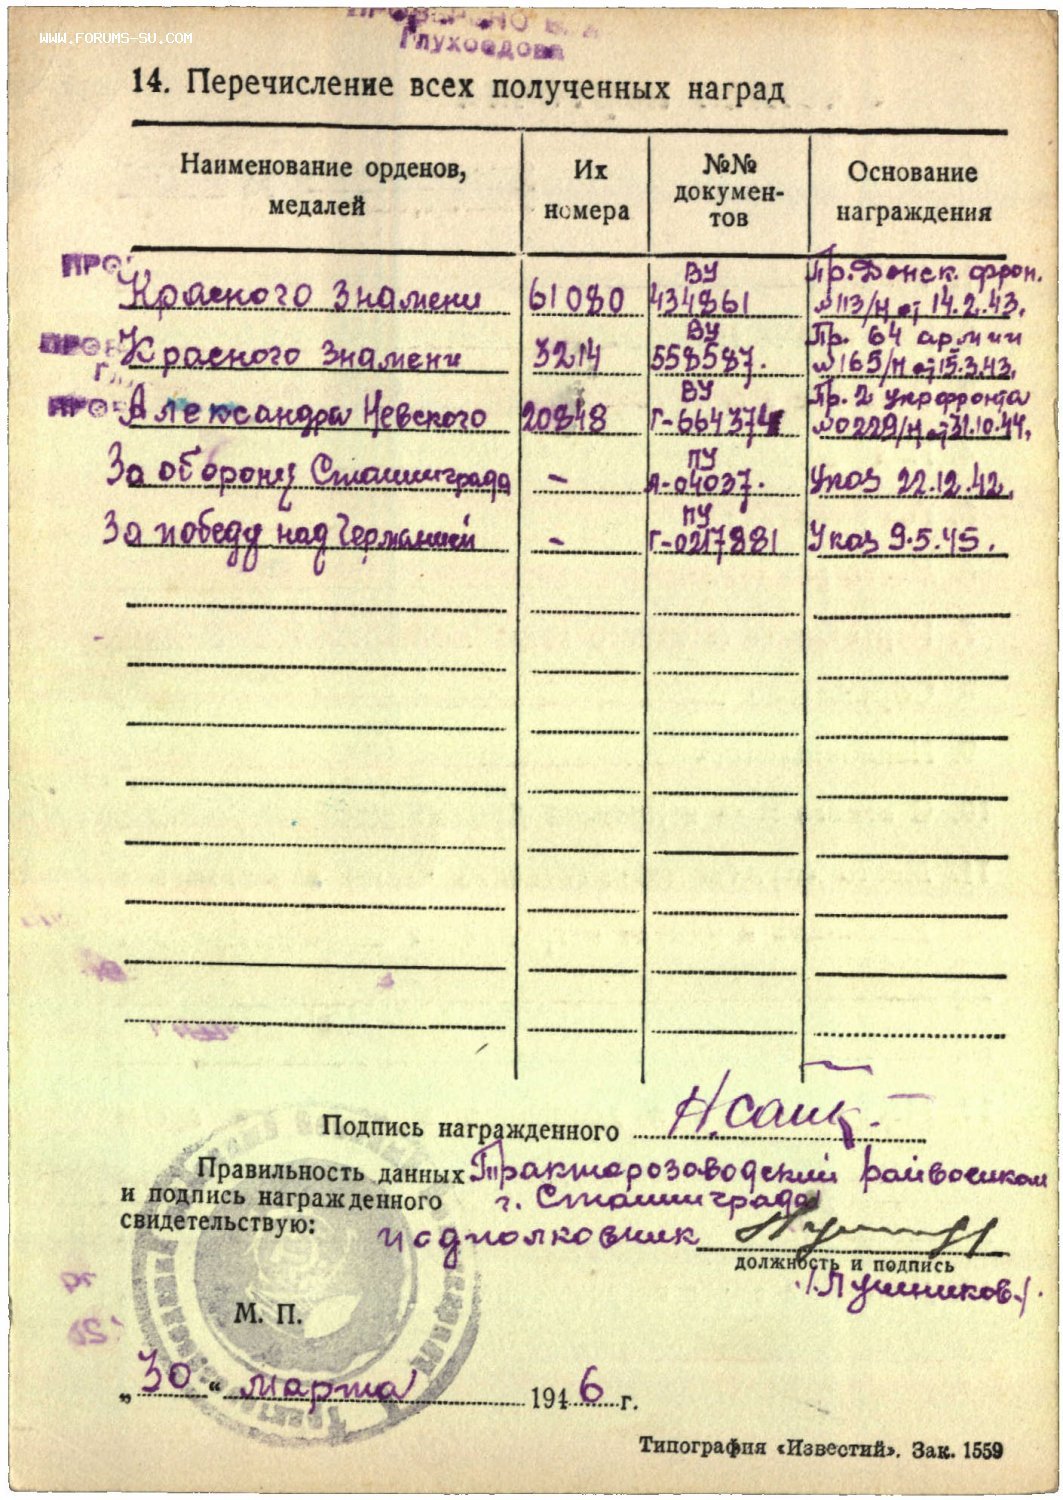 WWW.FORUMS-SU.COM
ПРОВЕРЕНО
Глухоедова
14. Перечисление всех полученных наград
Наименование орденов, медалей | Их номера | №№ документов | Основание награждения
ПРО
Красного Знамени | 61080 | ВУ 434861 | Пр. Донск. фрон. №113/н от 14.2.43.
ПРОВ
Красного Знамени | 3214 | ВУ 558587. | Пр. 64 армии №165/н от 15.3.43.
ПРОВ
Александра Невского | 20848 | ВУ Г-664374 | Пр. 2 укрфронта №0229/н от 31.10.44.
За оборону Сталинграда | - | ПУ А-04037. | Указ 22.12.42.
За победу над Германией | - | ПУ Г-0217881 | Указ 9.5.45.
Подпись награжденного
Правильность данных Тракторозаводский райвоенком
и подпись награжденного г. Сталинграда
свидетельствую: подполковник
должность и подпись
/Лушников/.
М. П.
„30“ марта 1946 г.
Типография «Известий». Зак. 1559